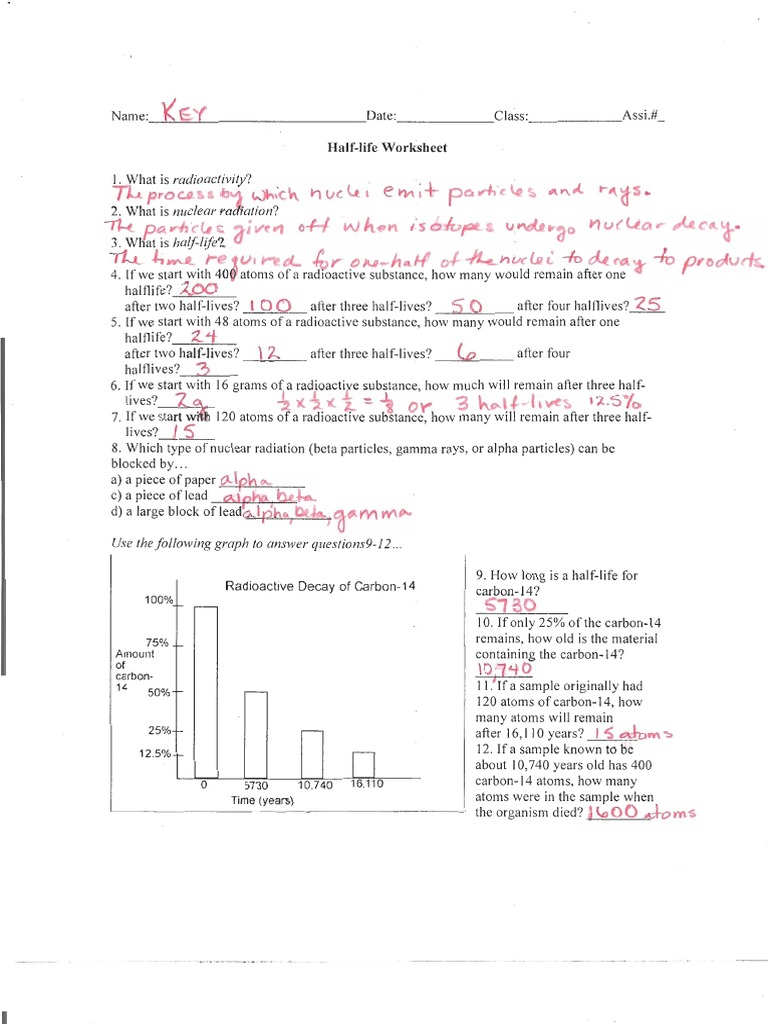 Name: KEY Date: Class: Assi.#_
Half-life Worksheet
1. What is radioactivity?
The process by which nuclei emit particles and rays.
2. What is nuclear radiation?
The particles given off when isotopes undergo nuclear decay.
3. What is half-life?
The time required for one-half of the nuclei to decay to products
4. If we start with 400 atoms of a radioactive substance, how many would remain after one
halflife? 200
after two half-lives? 100 after three half-lives? 50 after four halflives? 25
5. If we start with 48 atoms of a radioactive substance, how many would remain after one
halflife? 24
after two half-lives? 12 after three half-lives? 6 after four
halflives? 3
6. If we start with 16 grams of a radioactive substance, how much will remain after three half-
lives? 2g 1/2 x 1/2 x 1/2 = 1/8 or 3 half-lives 12.5%
7. If we start with 120 atoms of a radioactive substance, how many will remain after three half-
lives? 15
8. Which type of nuclear radiation (beta particles, gamma rays, or alpha particles) can be
blocked by...
a) a piece of paper alpha
c) a piece of lead alpha, beta
d) a large block of lead alpha, beta, gamma
Use the following graph to answer questions9-12...
Radioactive Decay of Carbon-14
100%
75%
Amount
of
carbon-
14
50%
25%
12.5%
0 5730 10,740 16,110
Time (years)
9. How long is a half-life for
carbon-14?
5730
10. If only 25% of the carbon-14
remains, how old is the material
containing the carbon-14?
10,740
11. If a sample originally had
120 atoms of carbon-14, how
many atoms will remain
after 16,110 years? 15 atoms
12. If a sample known to be
about 10,740 years old has 400
carbon-14 atoms, how many
atoms were in the sample when
the organism died? 1600 atoms